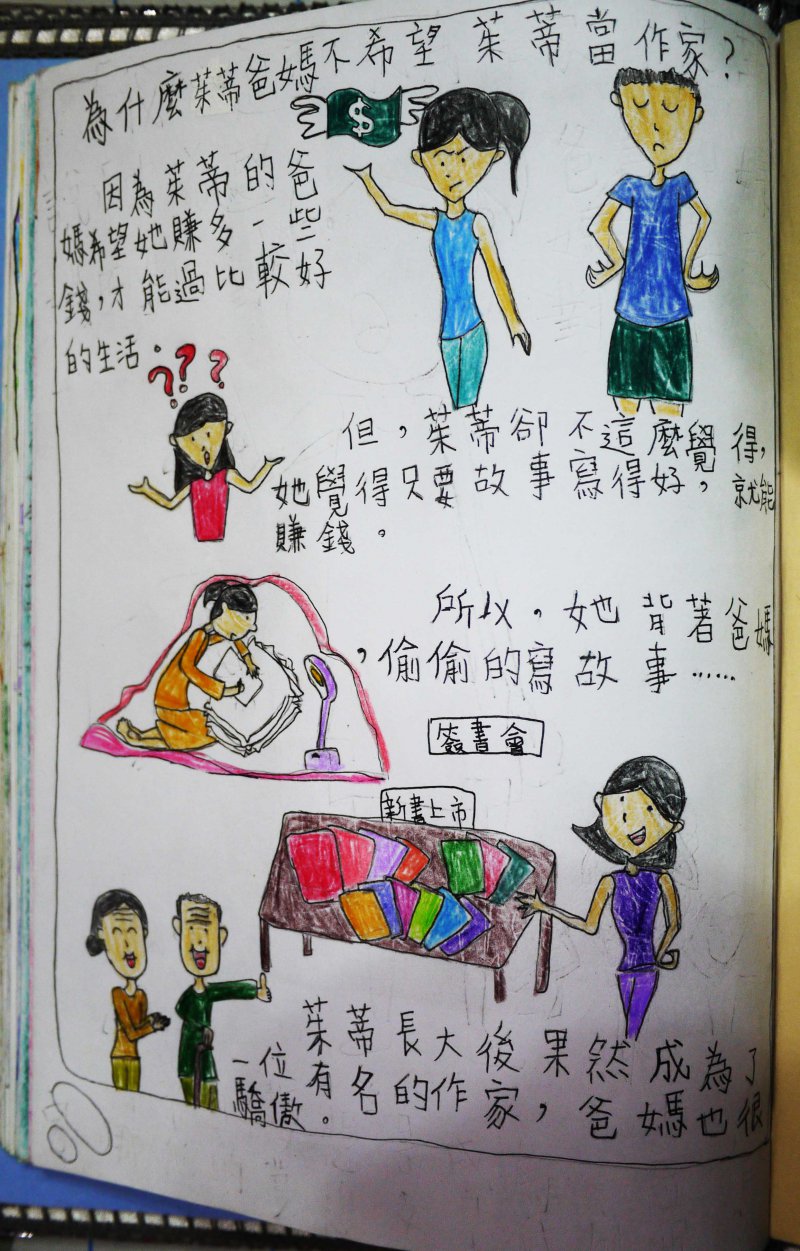 為什麼茱蒂爸媽不希望茱蒂當作家？
$
因為茱蒂的爸
媽希望她賺多一些
錢，才能過比較好
的生活。
???
但，茱蒂卻不這麼覺得，
她覺得只要故事寫得好，就能
賺錢。
所以，她背著爸媽
，偷偷的寫故事……
簽書會
新書上市
茱蒂長大後果然成為了
一位有名的作家，爸媽也很
驕傲。